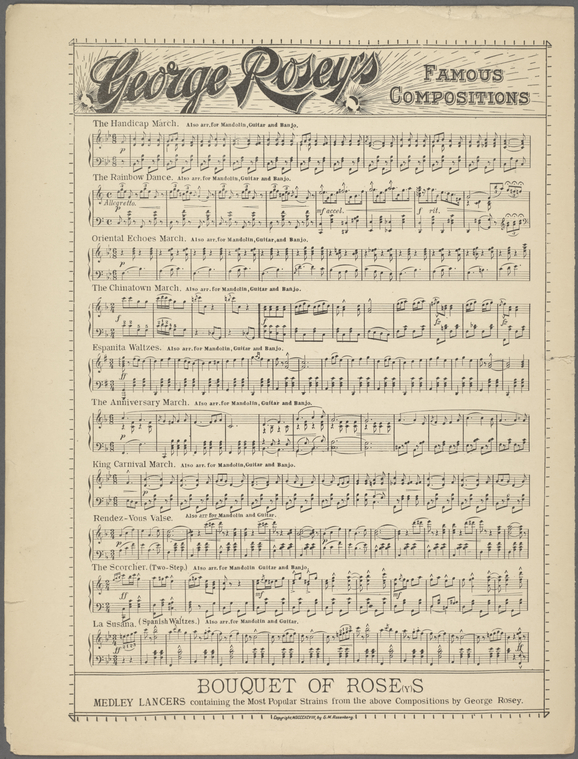 George Rosey's
FAMOUS
COMPOSITIONS
The Handicap March. Also arr. for Mandolin, Guitar and Banjo.
p
The Rainbow Dance. Also arr. for Mandolin, Guitar and Banjo.
Allegretto.
mf accel.
f rit.
Oriental Echoes March. Also arr. for Mandolin, Guitar, and Banjo.
p
The Chinatown March. Also arr. for Mandolin, Guitar and Banjo.
f
Espanita Waltzes. Also arr. for Mandolin, Guitar and Banjo.
ff
The Anniversary March. Also arr. for Mandolin, Guitar and Banjo.
p
King Carnival March. Also arr. for Mandolin, Guitar and Banjo.
p
Rendez-Vous Valse. Also arr for Mandolin and Guitar.
p
The Scorcher. (Two-Step.) Also arr. for Mandolin Guitar and Banjo.
ff
mf
mf
La Susana. (Spanish Waltzes.) Also arr. for Mandolin and Guitar.
ff
BOUQUET OF ROSE(Y)S
MEDLEY LANCERS containing the Most Popular Strains from the above Compositions by George Rosey.
Copyright, by G. M. Rosenberg